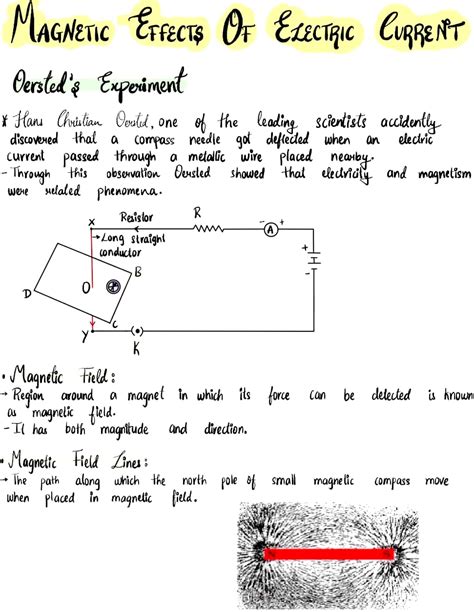 MAGNETIC EFFECTS OF ELECTRIC CURRENT
Oersted's Experiment
* Hans Christian Oersted, one of the leading scientists accidently
discovered that a compass needle got deflected when an electric
current passed through a metallic wire placed nearby.
- Through this observation Oersted showed that electricity and magnetism
were related phenomena.
X
Resistor
R
A
+
→ Long straight
conductor
+
-
B
D
O
C
Y
K
• Magnetic Field:
→ Region around a magnet in which its force can be detected is known
as magnetic field.
- It has both magnitude and direction.
• Magnetic Field Lines:
→ The path along which the north pole of small magnetic compass move
when placed in magnetic field.
N
S